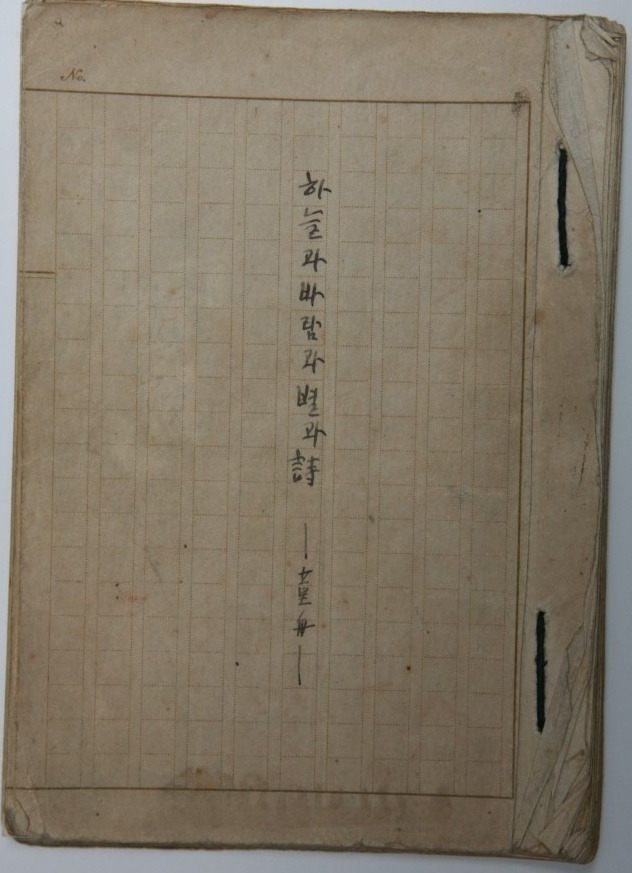 No.
하늘과바람과별과詩
—童舟—